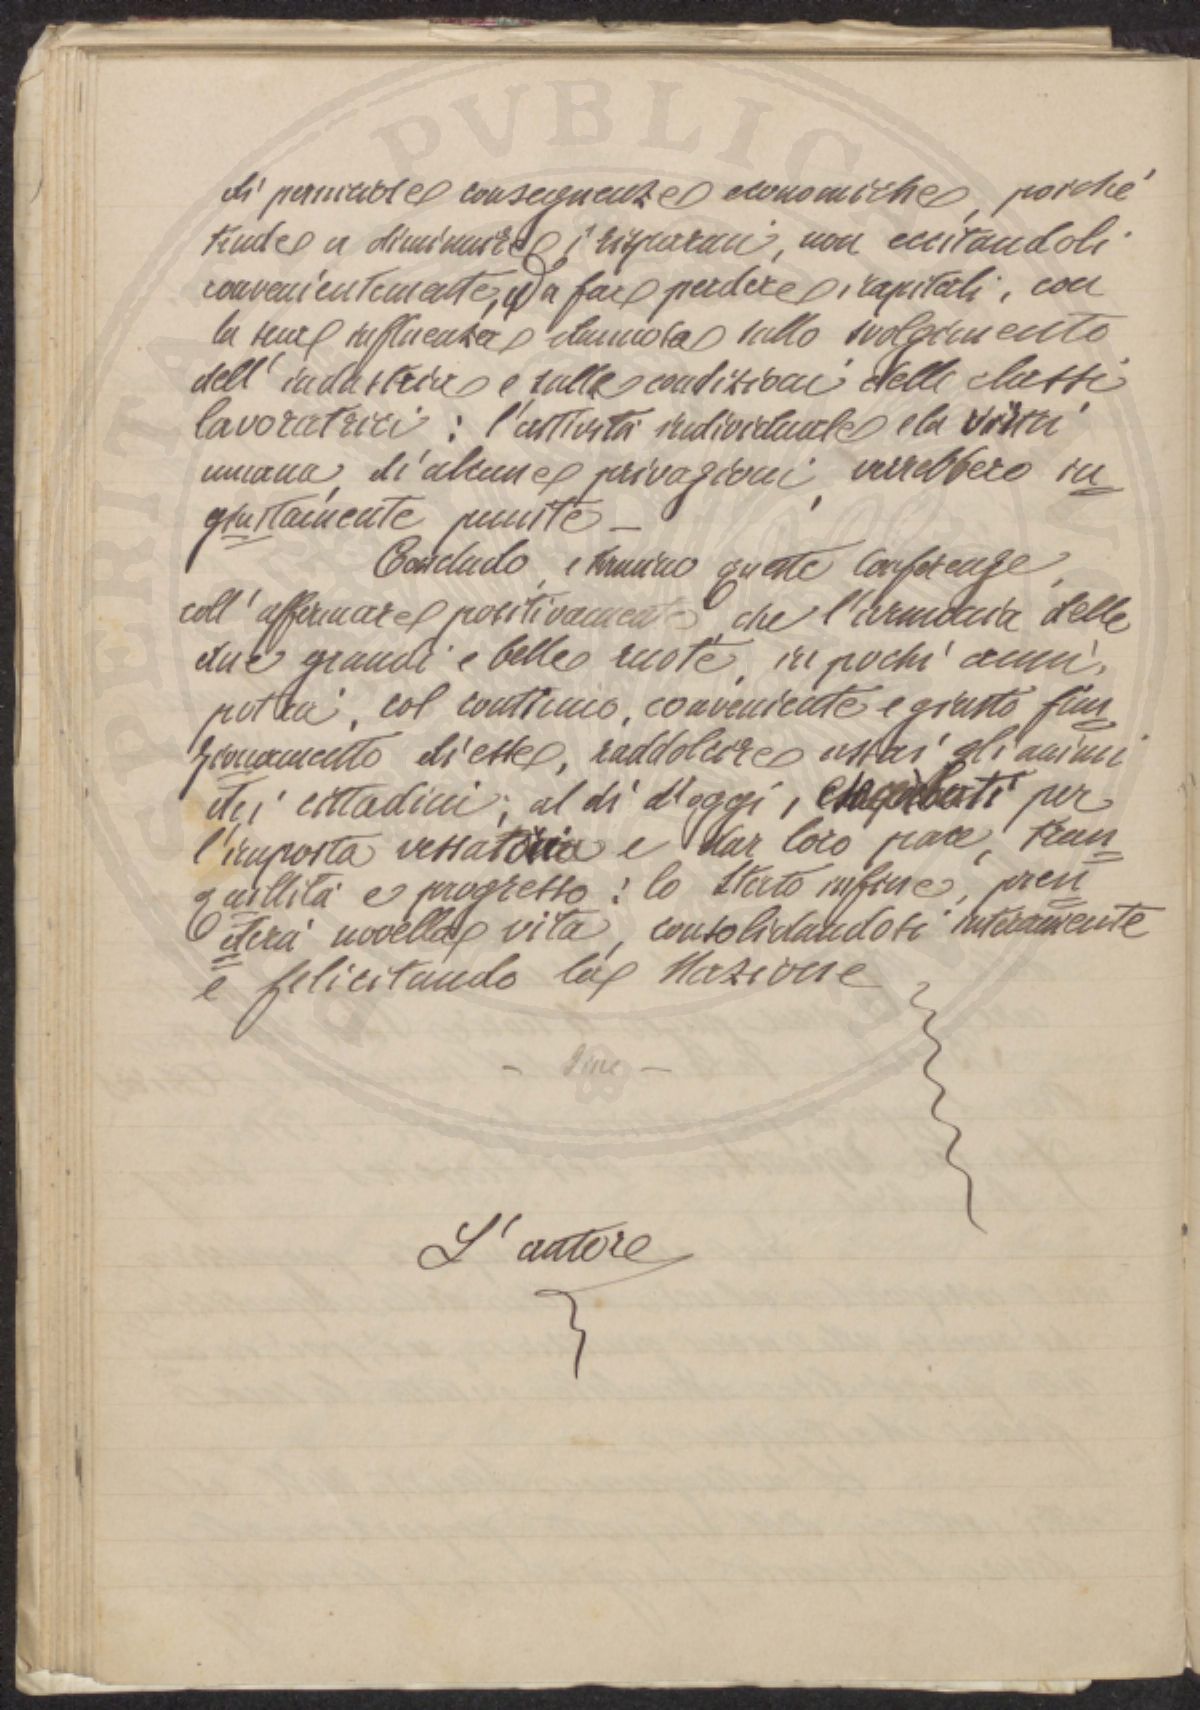 di perniciose conseguenze economiche, poiché
tende a diminuire i risparmi, non eccitandoli
convenientemente, e a far perdere i capitali, con
la sua influenza dannosa sullo svolgimento
dell'industria e sulle condizioni delle classi
lavoratrici: l'attività individuale e la virtù
umana, di alcune privazioni, verrebbero in
giustamente punite _
Concludo, e termino queste conferenze,
coll'affermare positivamente, che l'armonia delle
due grandi e belle ruote, in pochi anni,
potrà, col continuo, conveniente e giusto fun
zionamento di esse, raddolcire assai gli animi
dei cittadini; al dì d'oggi, esacerbati per
l'imposta vessatoria e dar loro pace, tran
quillità e progresso: lo Stato infine, pren
derà novella vita, consolidandosi interamente
e felicitando la Nazione
- Fine -
L'autore
PVBLICA